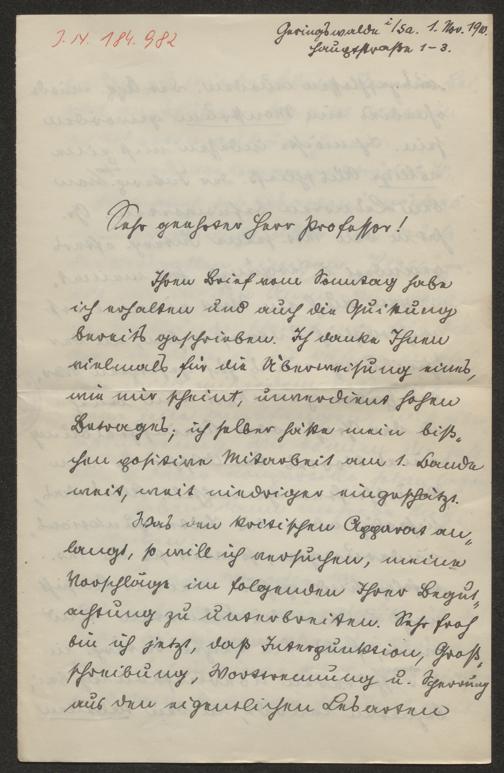 J. N. 184.982
Geringswalde i/Sa. 1. Nov. 1910.
Hauptstraße 1-3.
Sehr geehrter Herr Professor!
Ihren Brief vom Sonntag habe
ich erhalten und auch die Quittung
bereits geschrieben. Ich danke Ihnen
vielmals für die Überweisung eines,
wie mir scheint, unverdient hohen
Betrages; ich selber hätte mein biß-
chen positive Mitarbeit am 1. Bande
weit, weit niedriger eingeschätzt.
Was den kritischen Apparat an-
langt, so will ich versuchen, meine
Vorschläge im folgenden Ihrer Begut-
achtung zu unterbreiten. Sehr froh
bin ich jetzt, daß Interpunktion, Groß-
schreibung, Worttrennung u. Sperrung
aus den eigentlichen Lesarten